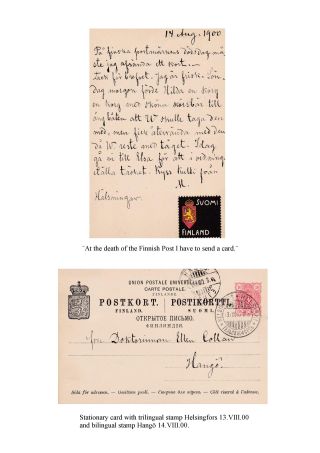 14 Aug. 1900
På finska postmärkens dödsdag må
ste jag afsända ett kort. —
för brefvet. Jag är frisk. Sön
dag morgon förde Hilda en korg
en korg med sköna körsbär till
ångbåten att W skulle taga den
med, men fick återvända med den
då W reste med tåget. Idag
gå en till Elsa för att i ordning
ställa täcket. Kyss kulle från
Helsningar. M.
SUOMI
FINLAND
¨At the death of the Finnish Post I have to send a card.¨
UNION POSTALE UNIVERSELLE
CARTE POSTALE
FINLANDE
POSTKORT. POSTIKORTTI.
FINLAND. SUOMI.
ОТКРЫТОЕ ПИСЬМО
ФИНЛЯНДІЯ
Fru Doktorinnan Ellen Collan
Hangö.
Sida för adressen. — Osoitteen puoli. — Сторона для адреса. — Côté réservé à l'adresse.
Stationary card with trilingual stamp Helsingfors 13.VIII.00
and bilingual stamp Hangö 14.VIII.00.